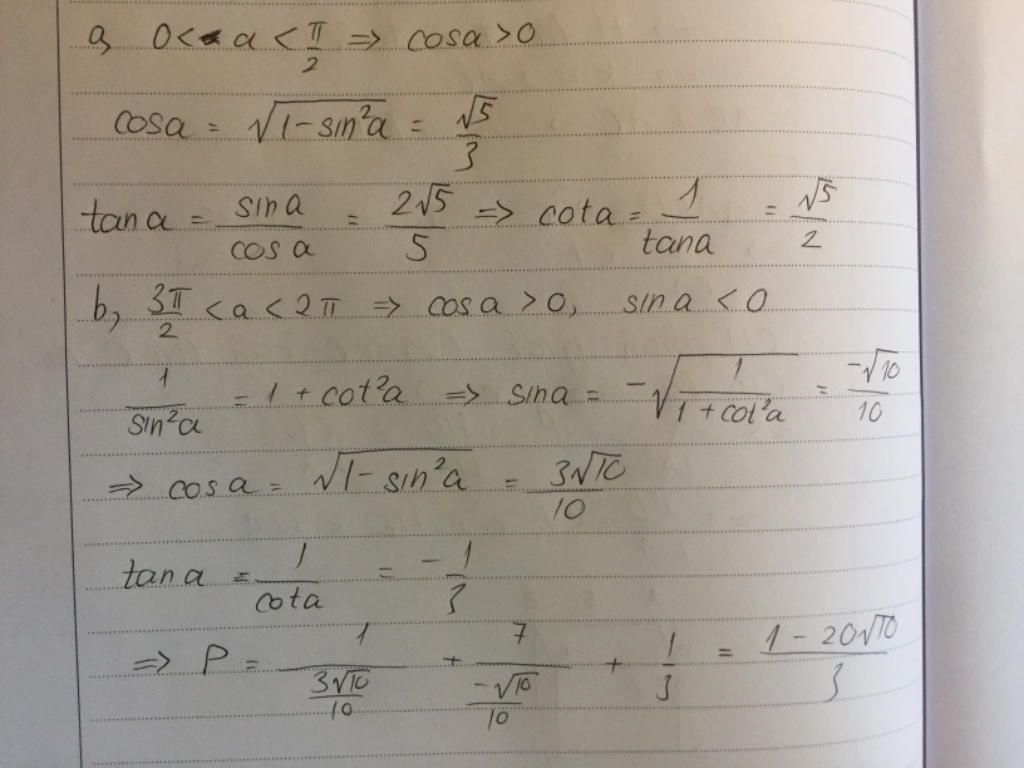 a, 0 < a < π/2 ⇒ cosa > 0
cosa = √(1-sin²a) = √5/3
tana = sina/cosa = 2√5/5 ⇒ cota = 1/tana = √5/2
b, 3π/2 < a < 2π ⇒ cosa > 0, sina < 0
1/sin²a = 1 + cot²a ⇒ sina = -√(1/(1+cot²a)) = -√10/10
⇒ cosa = √(1-sin²a) = 3√10/10
tana = 1/cota = -1/3
⇒ P = 1/(3√10/10) + 7/(-√10/10) + 1/3 = (1-20√10)/3